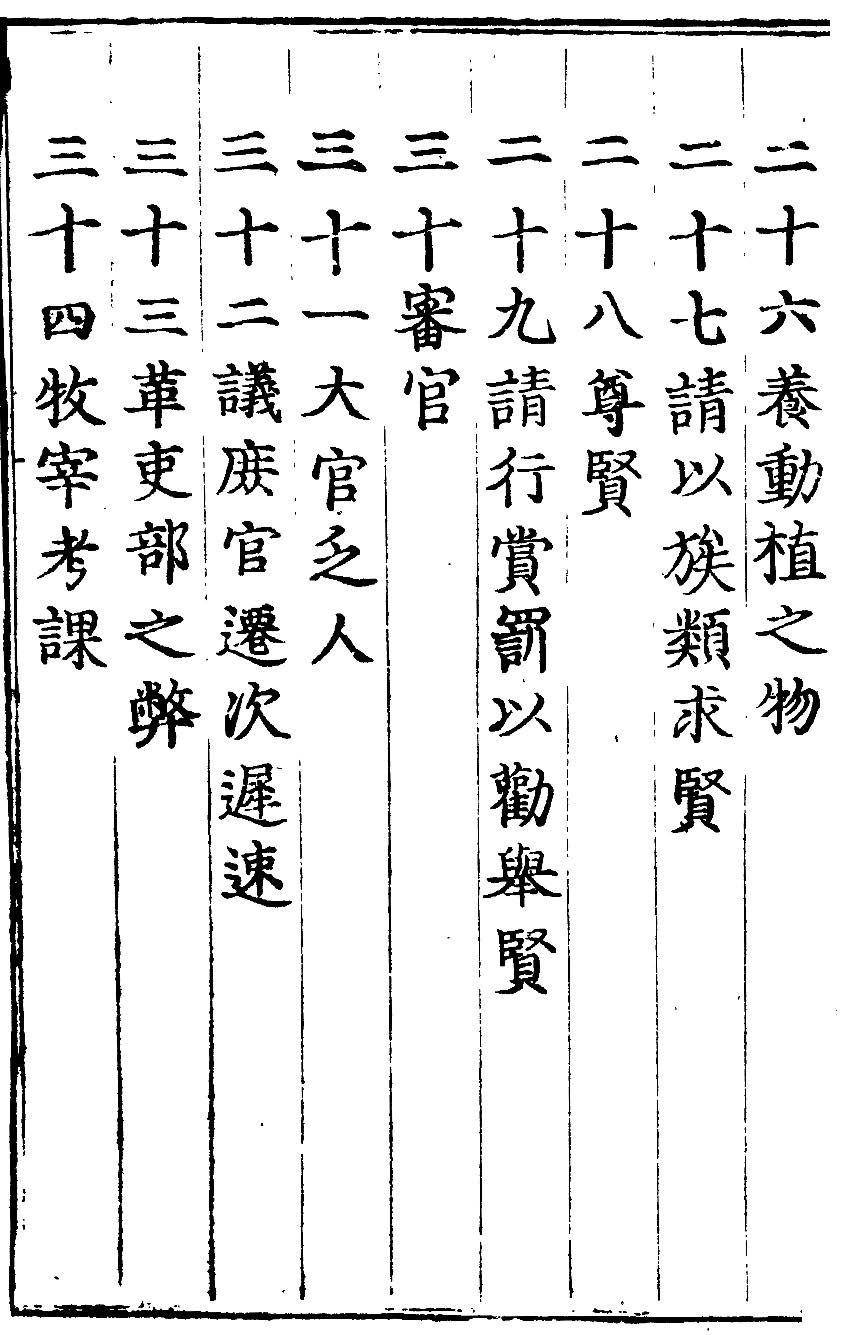 二十六養動植之物
二十七請以族類求賢
二十八尊賢
二十九請行賞罰以勸舉賢
三十審官
三十一大官乏人
三十二議庶官遷次遲速
三十三革吏部之弊
三十四牧宰考課